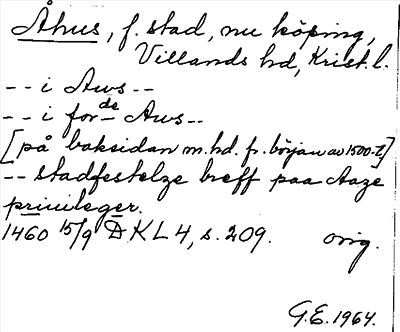 Åhus, f. stad, nu köping,
Villands hd, Krist. l.
-- i Aws --
-- i forde Aws --
[på baksidan m. hd. fr. början av 1500-t.]
-- stadfestelze breff paa Aaze
priuileger.
1460 15/9 DKL 4, s. 209. orig.
G.E. 1964.